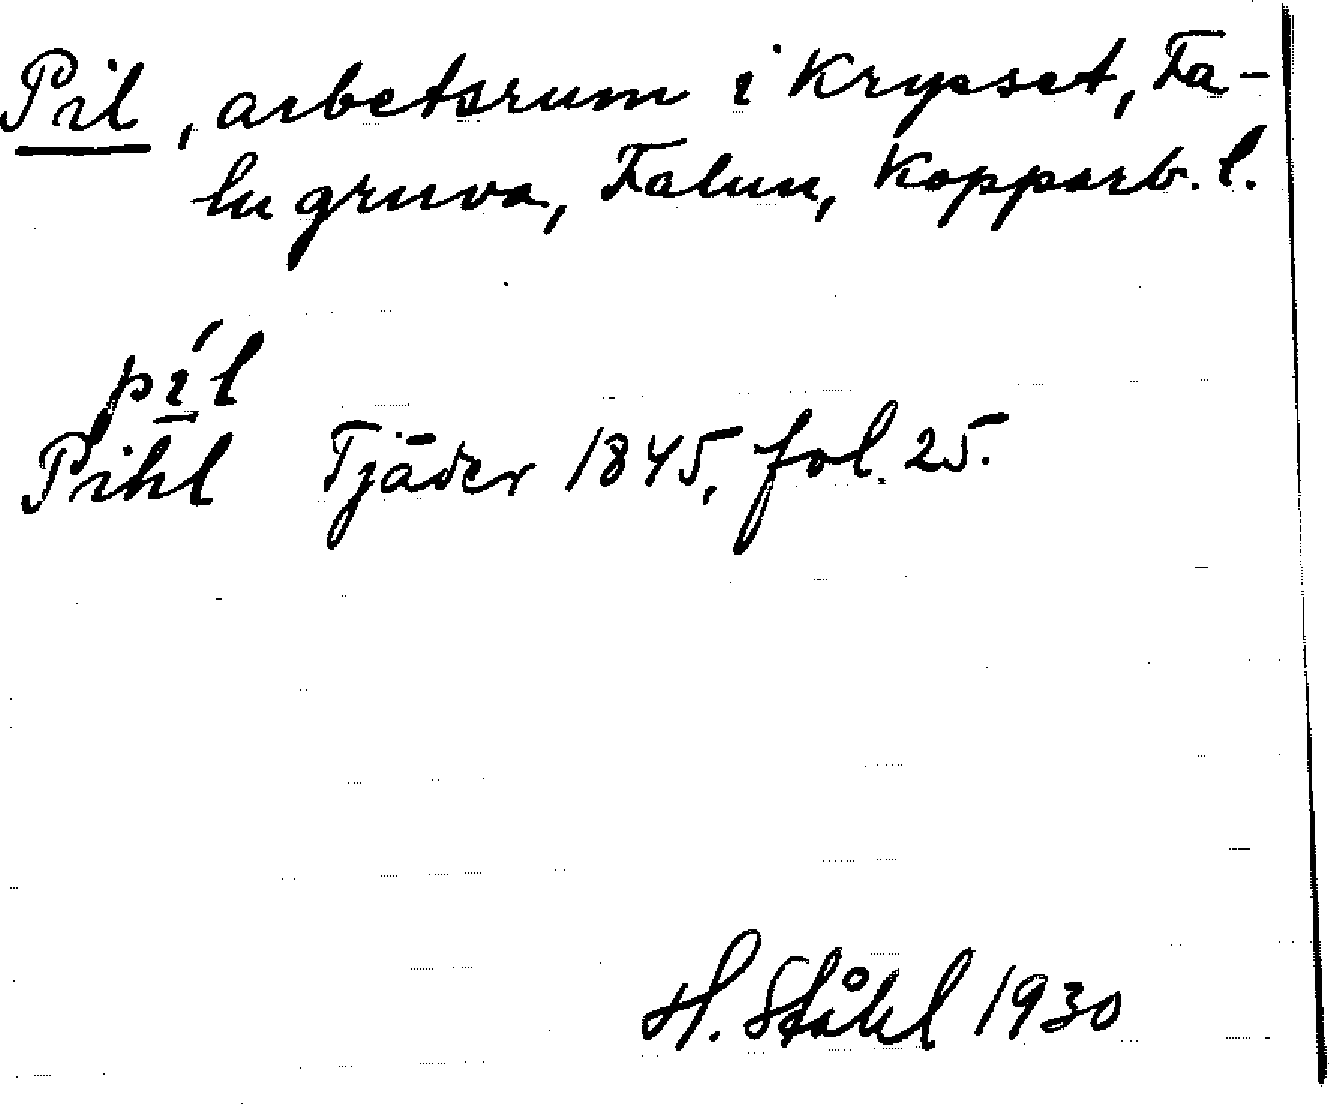 Pil, arbetsrum i Krypset, Fa-
lu gruva, Falun, Kopparb. l.
pi̱´l
Pihl Tjäder 1845, fol. 25.
H. Ståhl 1930